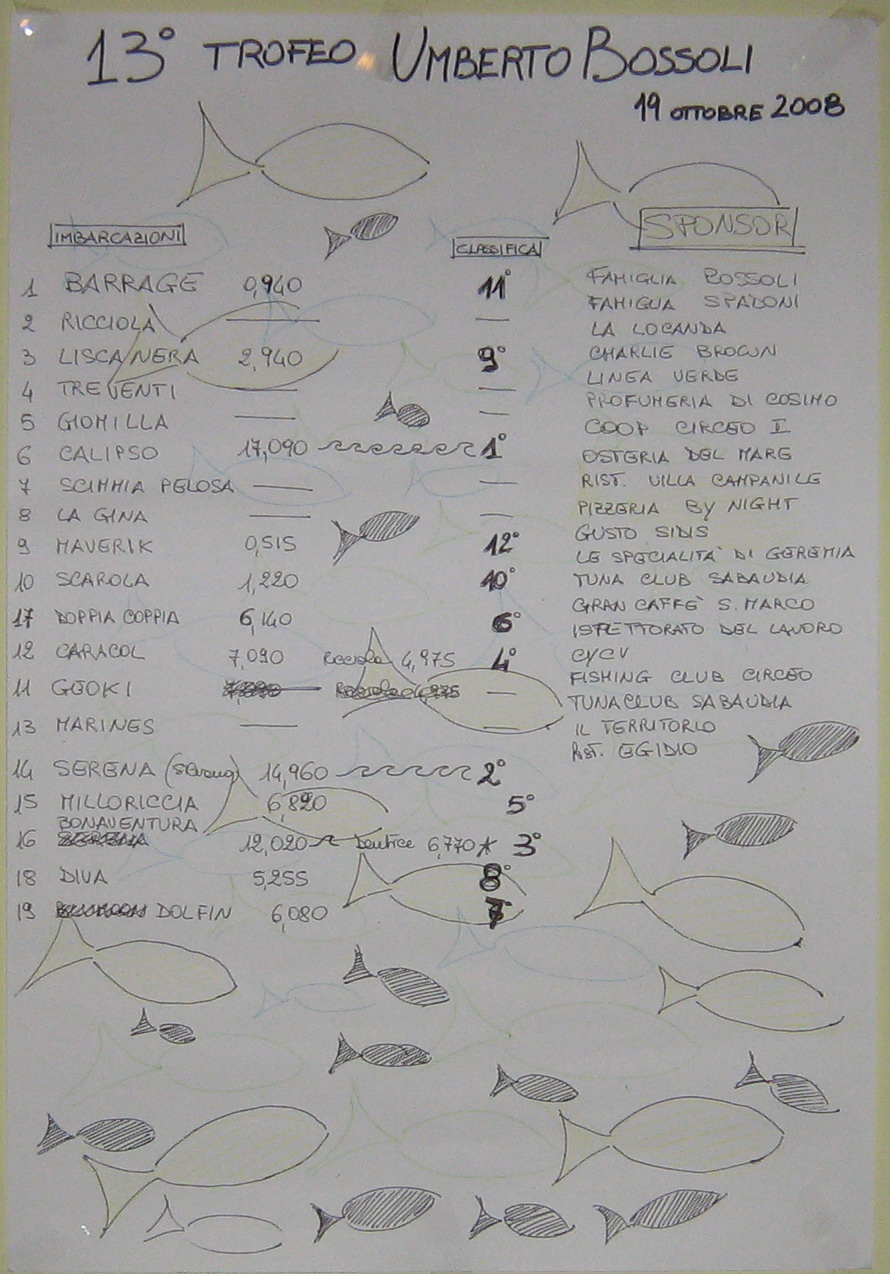 13° TROFEO UMBERTO BOSSOLI
19 OTTOBRE 2008
IMBARCAZIONI CLASSIFICA SPONSOR
1 BARRAGE 0,940 11°
2 RICCIOLA — —
3 LISCA NERA 2,940 9°
4 TREVENTI — —
5 GIOMILLA — —
6 CALIPSO 17,090 1°
7 SCIMMIA PELOSA — —
8 LA GINA — —
9 MAVERIK 0,515 12°
10 SCAROLA 1,220 10°
17 DOPPIA COPPIA 6,140 6°
12 CARACOL 7,090 Ricciola 4,975 4°
11 GEOKI — —
13 MARINES — —
14 SERENA 14,960 2°
15 MILLORICCIA 6,820 5°
BONAVENTURA
16 SERENA 12,020 Dentice 6,770 * 3°
18 DIVA 5,255 8°
19 DOLFIN 6,080 7
FAMIGLIA BOSSOLI
FAMIGLIA SPADONI
LA LOCANDA
CHARLIE BROWN
LINEA VERDE
PROFUMERIA DI COSIMO
COOP CIRCEO I
OSTERIA DEL MARE
RIST. VILLA CAMPANILE
PIZZERIA BY NIGHT
GUSTO SIDIS
LE SPECIALITA' DI GEREMIA
TUNA CLUB SABAUDIA
GRAN CAFFE' S. MARCO
ISPETTORATO DEL LAVORO
CYCV
FISHING CLUB CIRCEO
TUNA CLUB SABAUDIA
IL TERRITORIO
RIST. EGIDIO